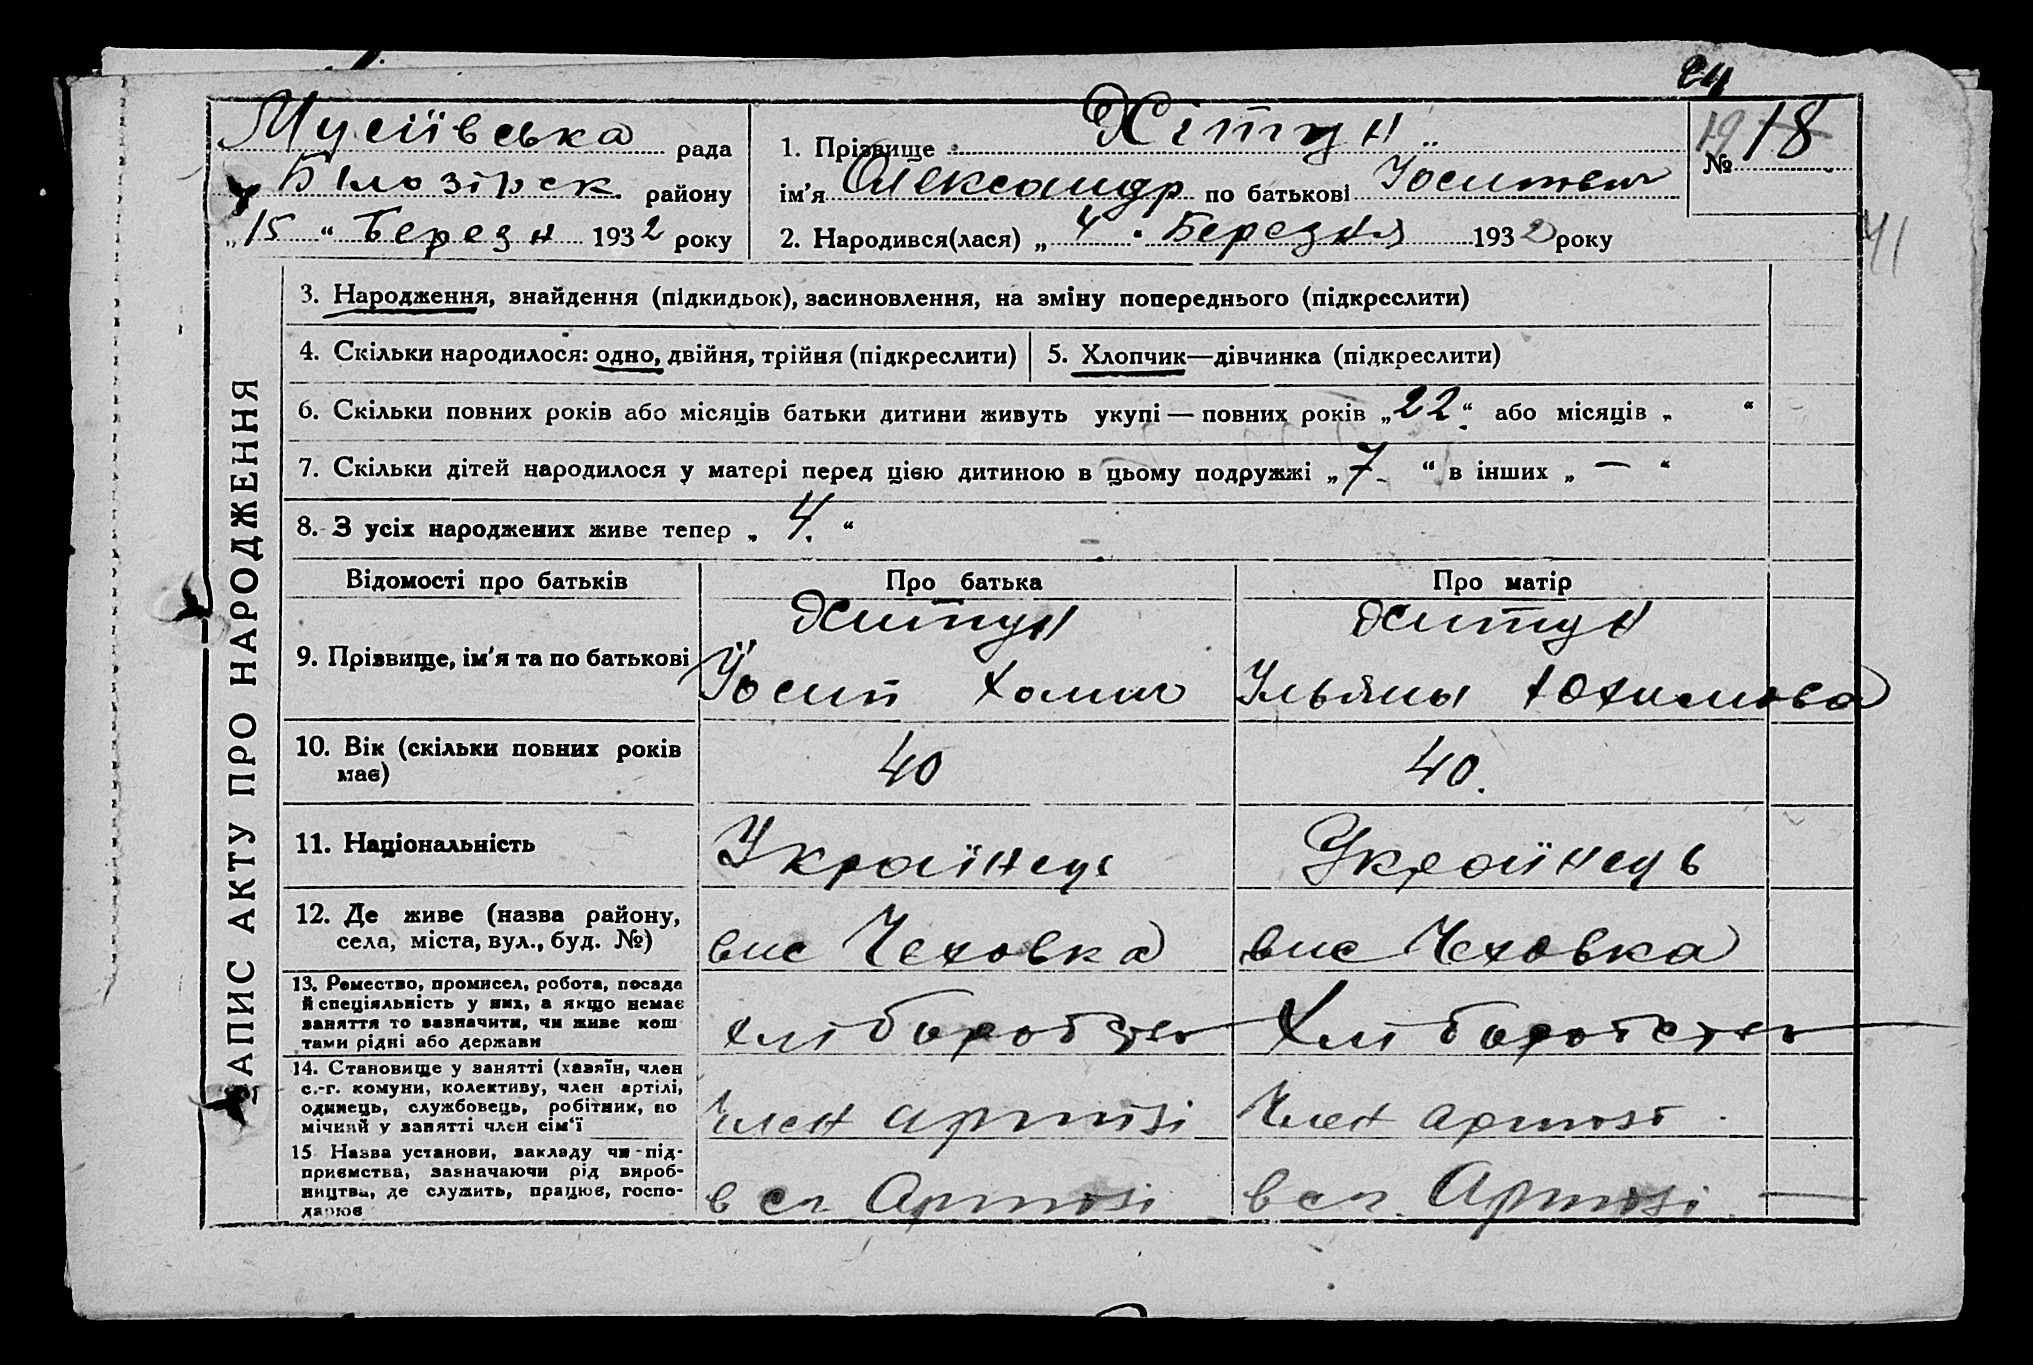 24
Мусіївська рада
Білозірск району
„15“ Березн 1932 року
1. Прізвище Хітун
ім'я Олександр по батькові Йосипович
2. Народився(лася) „4. Березня 1932 року
19 № 18
41
ЗАПИС АКТУ ПРО НАРОДЖЕННЯ
3. Народження, знайдення (підкидьок), засиновлення, на зміну попереднього (підкреслити)
4. Скільки народилося: одно, двійня, трійня (підкреслити)
5. Хлопчик—дівчинка (підкреслити)
6. Скільки повних років або місяців батьки дитини живуть укупі — повних років „22“ або місяців „ “
7. Скільки дітей народилося у матері перед цією дитиною в цьому подружжі „7“ в інших „ — “
8. З усіх народжених живе тепер „4.“
Відомості про батьків Про батька Про матір
9. Прізвище, ім'я та по батькові
Хитун
Йосип Хомич
Хитун
Ульяны Юхимова
10. Вік (скільки повних років
має)
40
40.
11. Національність
Українець
Українець
12. Де живе (назва району,
села, міста, вул., буд. №)
вис Чеховка
вис Чеховка
13. Ремество, промисел, робота, посада
й спеціяльність у них, а якщо немає
заняття то зазначити, чи живе кош
тами рідні або держави
хліборобство
Хліборобство
14. Становище у занятті (хазяїн, член
с.-г. комуни, колективу, член артілі,
одинець, службовець, робітник, по
мічний у занятті член сім'ї
Член артізі
Член артозі
15 Назва установи, закладу чи під-
приємства, зазначаючи рід вироб-
ництва, де служить, працює, госпо-
дарює
в сг. Артозі
в сг. Артозі —